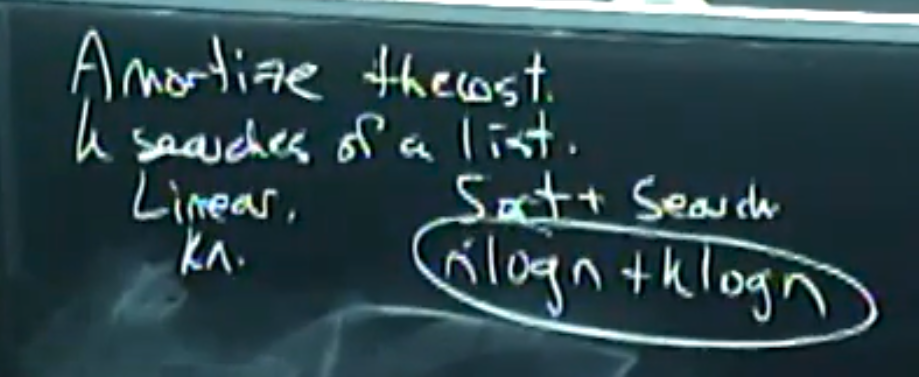 Amortize the cost.
k searches of a list.
Linear, Sort + Search
kn. nlogn + klogn